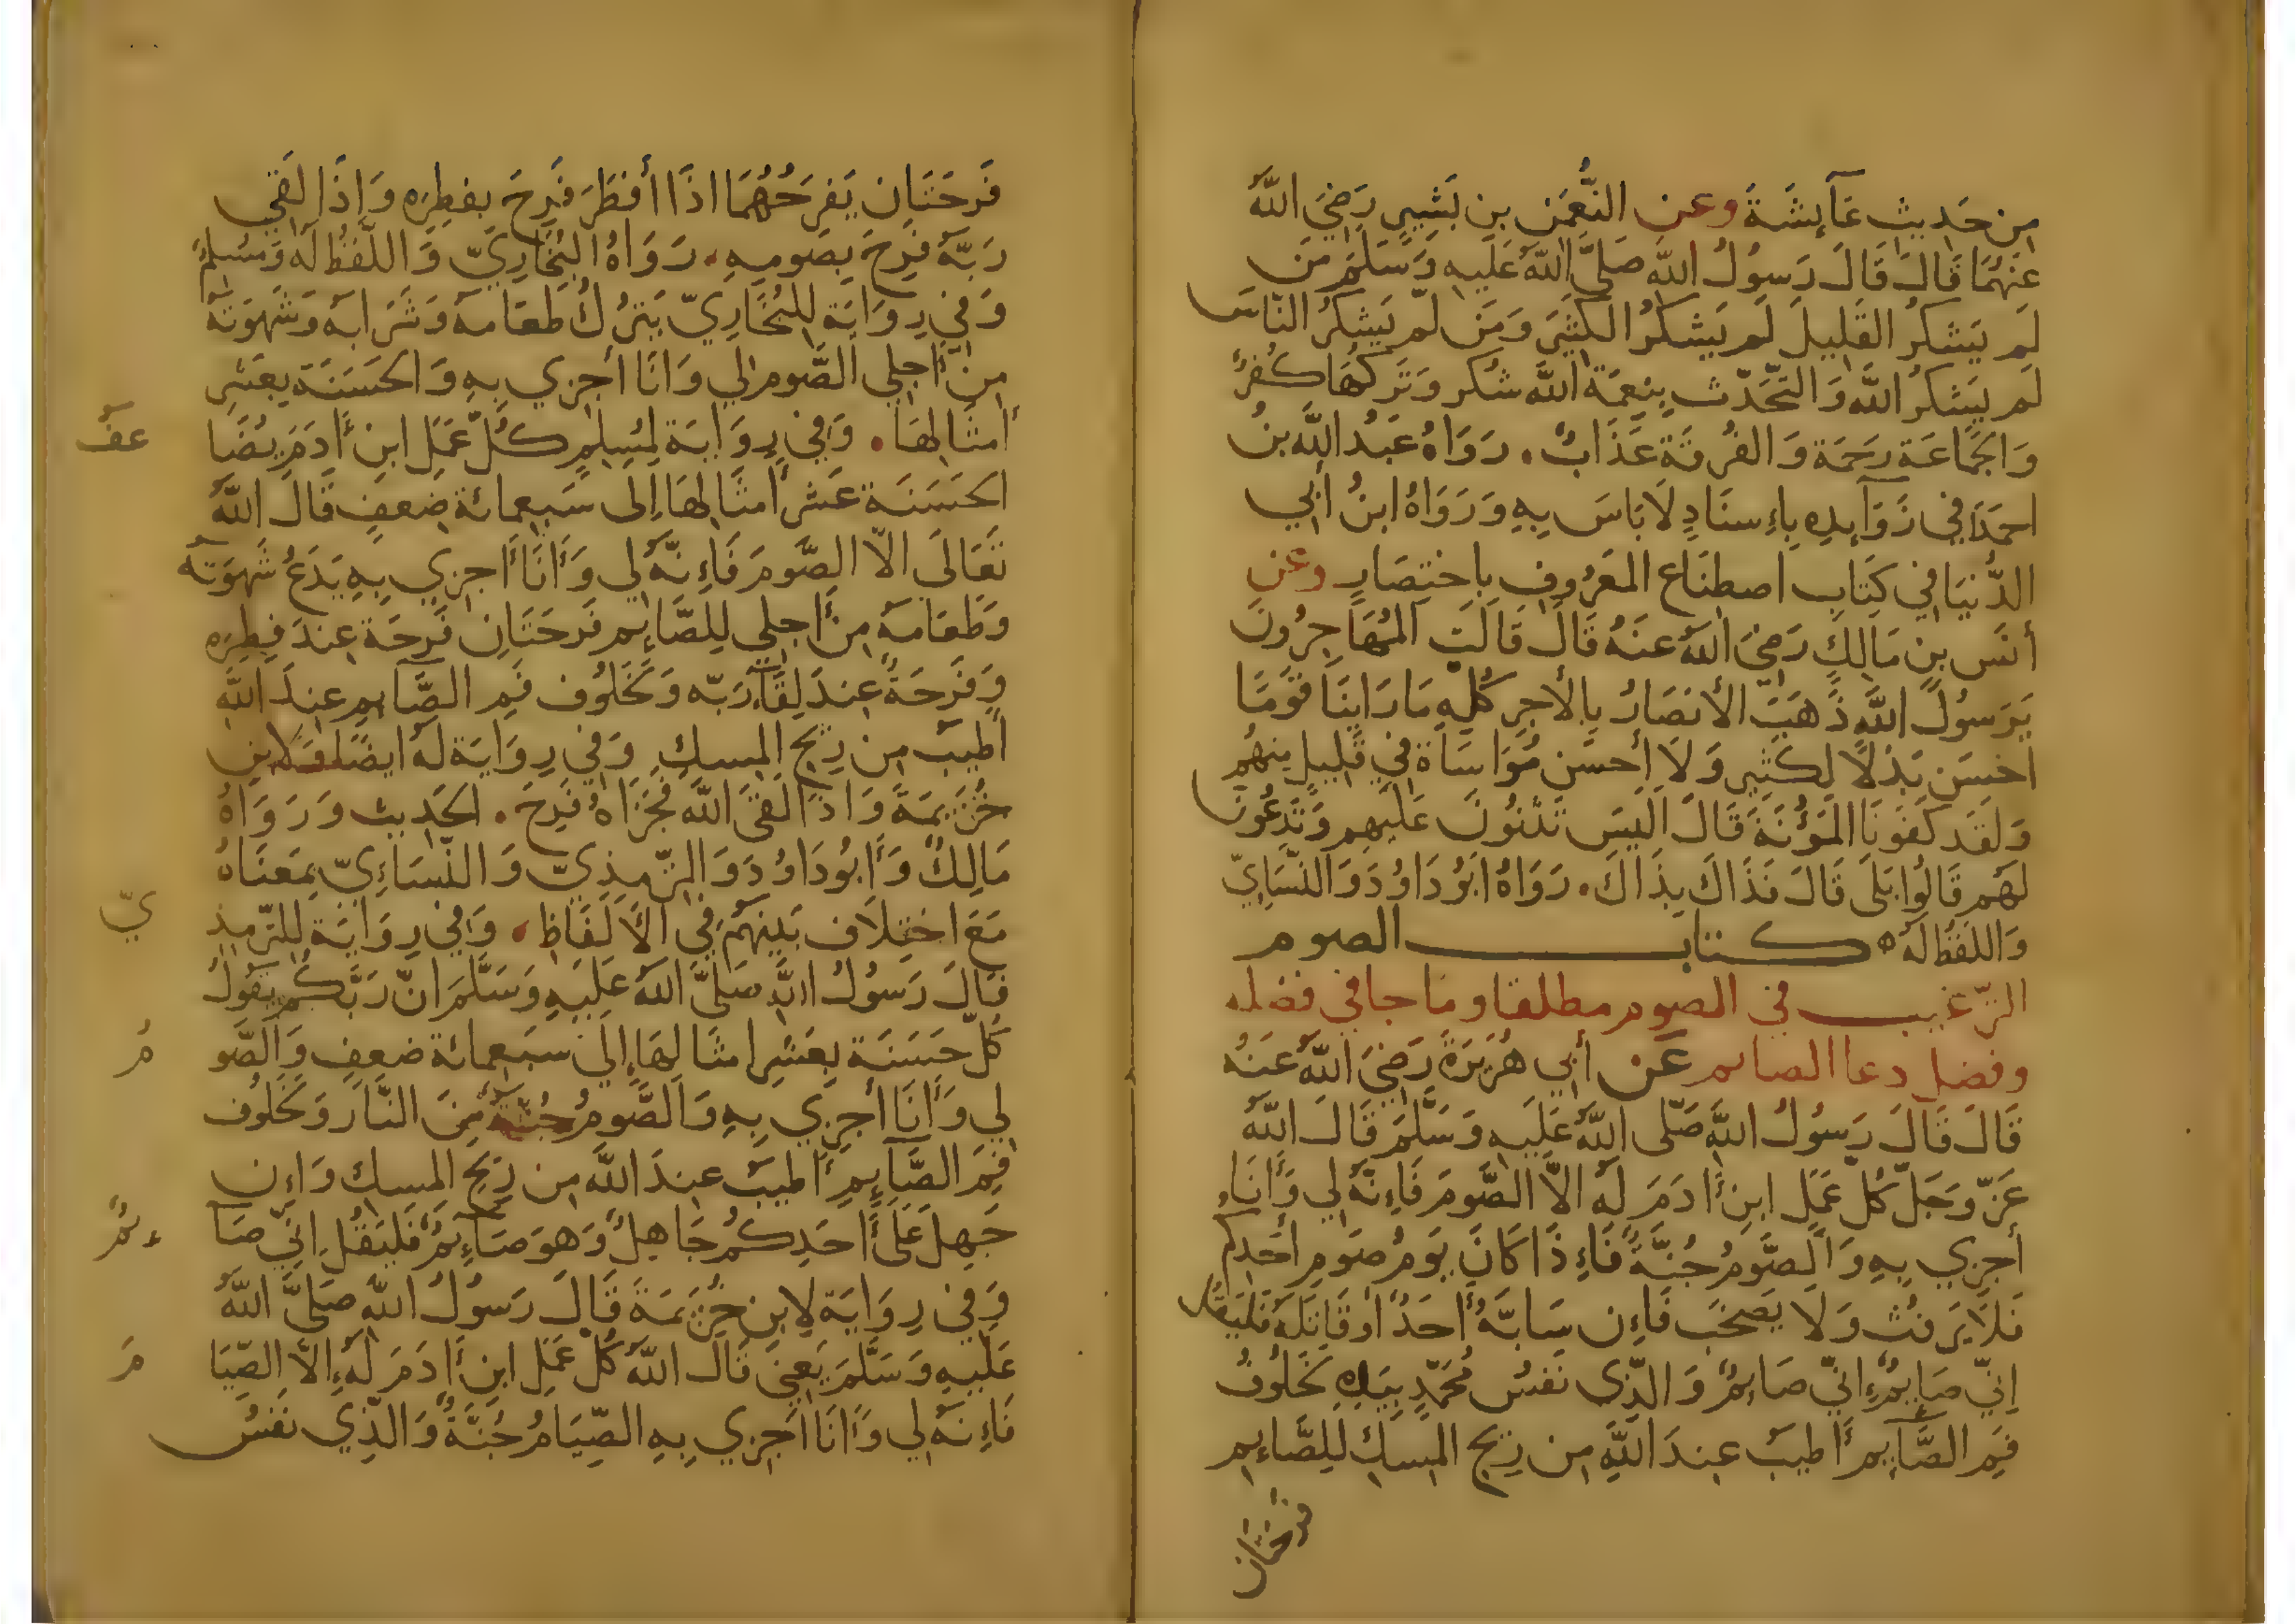 مِن حَدِيثِ عَآئِشَةَ وعن النُّعمَن بن بَشِيرٍ رَضِيَ اللَّهُ
عَنهُمَا قَالَ قَالَ رَسولُ اللَّه صَلَّى اللَّهُ عَلَيهِ وَسَلَّمَ مَن
لَم يَشكُر القَلِيلَ لَم يَشكُر الكَثِيرَ وَمَن لَم يَشكُر النَّاسَ
لَم يَشكُر اللَّه وَالتَّحَدّث بِنِعمَةِ اللَّه شُكر وَتَركُهَا كُفرٌ
وَالجَمَاعَة رَحمَة وَالفُرقَة عَذَابٌ . رَوَاهُ عَبدُ اللَّه بنُ
احمَدَ في زَوَآئِدِه بِاءِسنَادٍ لَا بَاسَ بِهِ وَرَوَاهُ ابنُ ابِي
الدُّنيَا في كِتَابِ اصطِنَاع المَعرُوفِ بِاختِصَارٍ وعن
أنَس بنِ مَالِكٍ رَضِيَ اللَّهُ عَنهُ قَالَ قَالَتِ المُهَاجِرُونَ
يَرَسولَ اللَّهِ ذَهَبَتِ الأنصَارُ بِالأجرِ كُلِّهِ مَا رَاينَا قَومًا
احسَن بَذلًا لِكَثِيرٍ وَلَا أحسَن مُوَاسَاة فِي قَلِيلٍ مِنهُم
وَلَقَد كَفَونَا المَؤُنَةَ قَالَ الَيسَ تَثنُونَ عَلَيهِم وَتَدعُونَ
لَهُم قَالُوا بَلَى قَالَ فَذَاكَ بِذَاكَ . رَوَاهُ ابُو دَاوُدَ وَالنَّسَايّ
وَاللَّفظُ لَهُ ه كتاب الصوم
الترّغيب في الصوم مطلقا وما جا في فضله
وفضل دعا الصايم عَن أبي هُرَيرَةَ رَضِيَ اللَّهُ عَنهُ
قَالَ قَالَ رَسُولُ اللَّهِ صَلّى اللَّهُ عَلَيهِ وَسَلَّمَ قَالَ اللَّهُ
عَزّ وَجَلّ كُلّ عَمَلِ ابنِ أَادَمَ لَهُ الَّا الصَّومَ فَاءِنَّهُ لِي وَأَنَا
أجزِي بِهِ وَالصَّومُ جُنَّةٌ فَاءِذَا كَانَ يَومُ صَومِ أحَدِكُم
فَلَا يَرفُث وَلَا يَصخَب فَاءِن سَابَّهُ أَحَدٌ اَو قَاتَلَهُ فَليَقُل
اِنّي صَايِمٌ اِنّي صَايِمٌ وَالَّذِى نَفسُ مُحَمَّدٍ بِيَدِهِ لَخَلُوفُ
فَمِ الصَّآيِم أَطيَبُ عِندَ اللَّهِ مِن رِيحِ المِسكِ لِلصَّاءِيِم
فرحتان
فَرحَتَانِ يَفرَحُهُمَا اذَا أفطَرَ فَرِحَ بِفِطرِهِ وَاِذَا لَقِيَ
رَبَّهُ فَرِحَ بِصَومِهِ . رَوَاهُ البُخَارِيّ وَاللَّفظُ لَهُ وَمُسلِمٌ
وَفي رِوَايَة لِلبُخَارِيّ يَترُكُ طَعَامَهُ وَشَرَابَهُ وَشَهوَتَهُ
مِن أَجلِي الصَّوم لِي وَانَا أجزِي بِهِ وَالحَسَنَة بِعَشرِ
أمثَالِهَا . وَفي رِوَايَة لِمُسلِمٍ كُلُّ عَمَلِ ابنِ أَادَمَ يُضَا
عَفُ
الحَسَنَة عَشر أَمثَالِهَا اِلى سَبعِمائَة ضِعفٍ قَالَ اللَّهُ
تَعَالَى الاّ الصَّومَ فَاءِنَّهُ لِي وَأَنَا أَجزِي بِهِ يَدَعُ شَهوَتَهُ
وَطَعَامَهُ مِن أَجلِي لِلصَّايِم فَرحَتَانِ فَرحَة عِندَ فِطرِهِ
وَفَرحَةٌ عِندَ لِقَآءِ رَبّه وَلَخَلُوف فَمِ الصَّآيِمِ عِندَ اللَّهِ
اطيَب مِن رِيحِ المِسكِ وَفي رِوَايَة لَهُ ايضًا وَلابنِ
خُزَيمَةَ وَاذَا لَقِيَ اللَّهَ فَجَزَاهُ فَرِحَ . الحَدِيث وَرَوَاهُ
مَالِكٌ وَأَبُو دَاوُدَ وَالترّمِذِيّ وَالنَّسَاءِيّ بِمَعنَاهُ
مَعَ اختِلَاف بَينَهُم فِي الأَلفَاظِ . وَفي رِوَايَة لِلترّمِذِ
يّ
قَالَ رَسُولُ اللَّهِ صَلَّى اللَّهُ عَلَيهِ وَسَلَّمَ انّ رَبَّكُم يَقُولُ
كُلّ حَسَنَة بِعَشرِ امثَالِهَا إِلي سَبعِمائَة ضعفٍ وَالصَّو
مُ
لِي وَأَنَا أجزِي بِهِ وَالصَّومُ جُنَّةٌ مِنَ النَّار وَلَخَلُوف
فَمِ الصَّآيِمِ أَطيَبُ عِندَ اللَّهِ مِن رِيحِ المِسكِ وَاءِن
جَهِلَ عَلَى أَحَدِكُم جَاهِلٌ وَهوَ صَآءِيمٌ فَليَقُل اِنّي صَآ
ءِيمٌ
وَفي رِوَايَة لِابنِ خُزَيمَةَ قَالَ رَسولُ اللَّهِ صَلَّى اللَّهُ
عَلَيهِ وَسَلَّمَ يَعنِي قَالَ اللَّهُ كُلّ عَمَلِ ابنِ أَادَمَ لَهُ اِلاَّ الصِّيَا
مَ
فَاءِنَهُ لِي وَأَنَا أَجزِي بِهِ الصِّيَامُ جُنَّةٌ وَالَّذِي نَفسُ